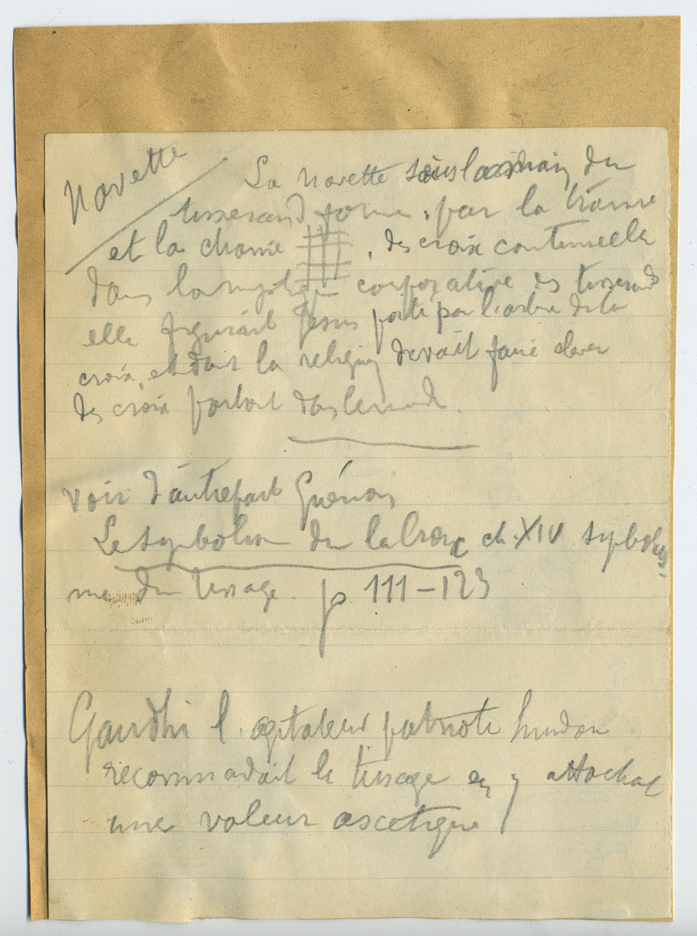 Navette
La navette sous la main du
tisserand forme, par la trame
et la chaîne, des croix continuelles
dans la mystique corporative des tisserands
elle figurait Jésus porté par l'arbre de la
croix, et dont la religion devait faire élever
des croix partout dans le monde.
voir d'autre part Guénon
Le symbolisme de la Croix ch. XIV symbolis-
me du tissage. p 111-123
Gandhi l'agitateur patriote hindou
recommandait le tissage en y attachant
une valeur ascétique